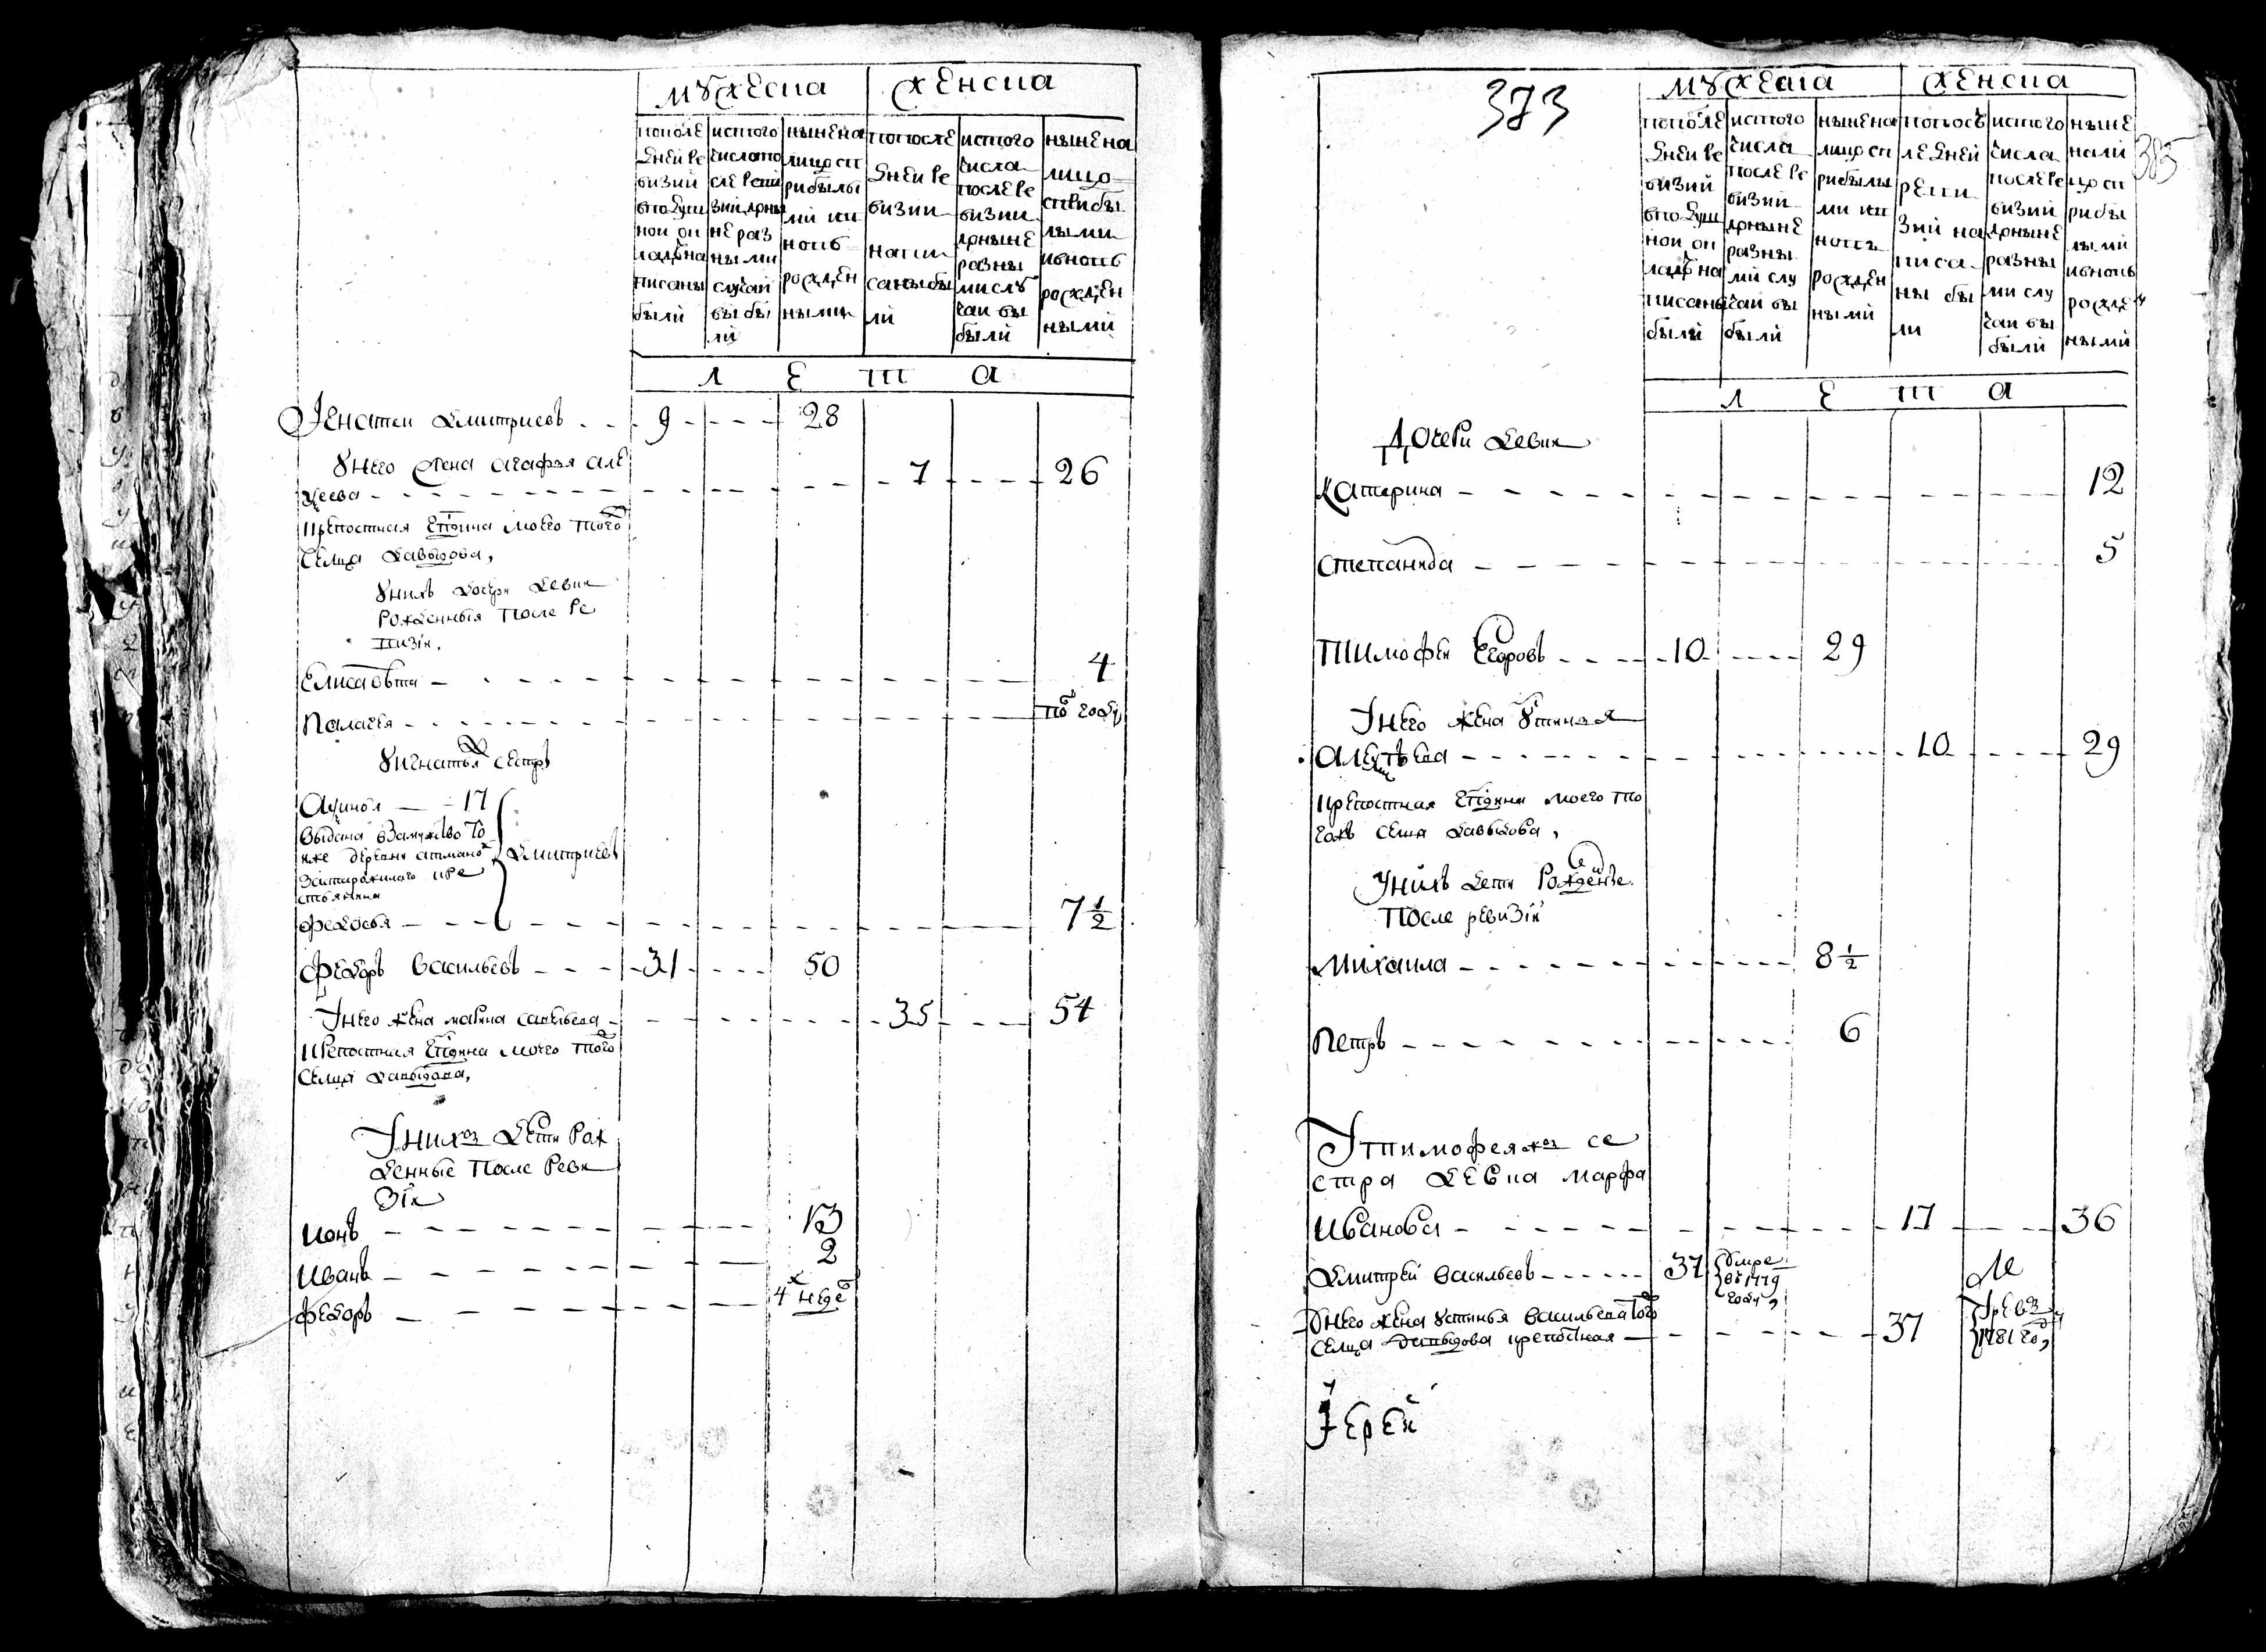 мужеска женска
по после
дней ре
визии
в подуш
ной ок
ладъ на
писаны
были
ис того
числа по
сле реви
зии до ны
не раз
ными
случаи
вы бы
ли
ныне на
лицо с п
рибылы
ми и в
новь
рожден
ными
по после
дней ре
визии
напи
саны бы
ли
ис того
числа
после ре
визии
до ныне
разны
ми слу
чаи вы
были
ныне на
лицо
с прибы
лыми
и вновь
рожден
ными
л е т а
Игнатеи дмитриевъ 9 28
У него жена агафья але
ѯеева 7 26
крепостная моего того
селца давыдова,
У нихъ дочери девки
рожденныя после ре
визiи.
Елисавета 4
Палагея по году
У игнатья сестръ
Аѯинья 17
выдана в замужство то
иже деревни
дмитриевы
федосья 7 1/2
Федоръ васильевъ 31 50
У него жена марина савельева 35 54
крепостная моего того
селца давыдова,
У нихъ дети рож
денные после реви
зiи
Ионъ 13
Иванъ 2
федоръ 4 неде
373
383
мужеска женска
по после
дней ре
визии
в подуш
ной ок
ладъ на
писаны
были
ис того
числа
после ре
визии
до ныне
разны
ми слу
чаи вы
были
ныне на
лицо с п
рибылы
ми и в
новь
рожден
ными
по пос
ледней
реви
зии на
писа
ны бы
ли
ис того
числа
после ре
визии
до ныне
разны
ми слу
чаи вы
были
ныне
нали
цо с п
рибы
лыми
и вновь
рожде
ными
л е т а
Дочери девки
Катерина 12
степанида 5
Тимофеи Егоровъ 10 29
У него жена устинья
10 29
крепостная моего то
гожъ селца давыдова,
У нихъ дети рожденые
после ревизiи
Михаила 8 1/2
Петръ 6
У тимофея жъ се
стра девка марфа
Иванова 17 36
Дмитреи васильевъ 37 умре
в 1779
году,
У него жена устинья васильева того
селца давыдова крепостная 37
1781 году
Iереи